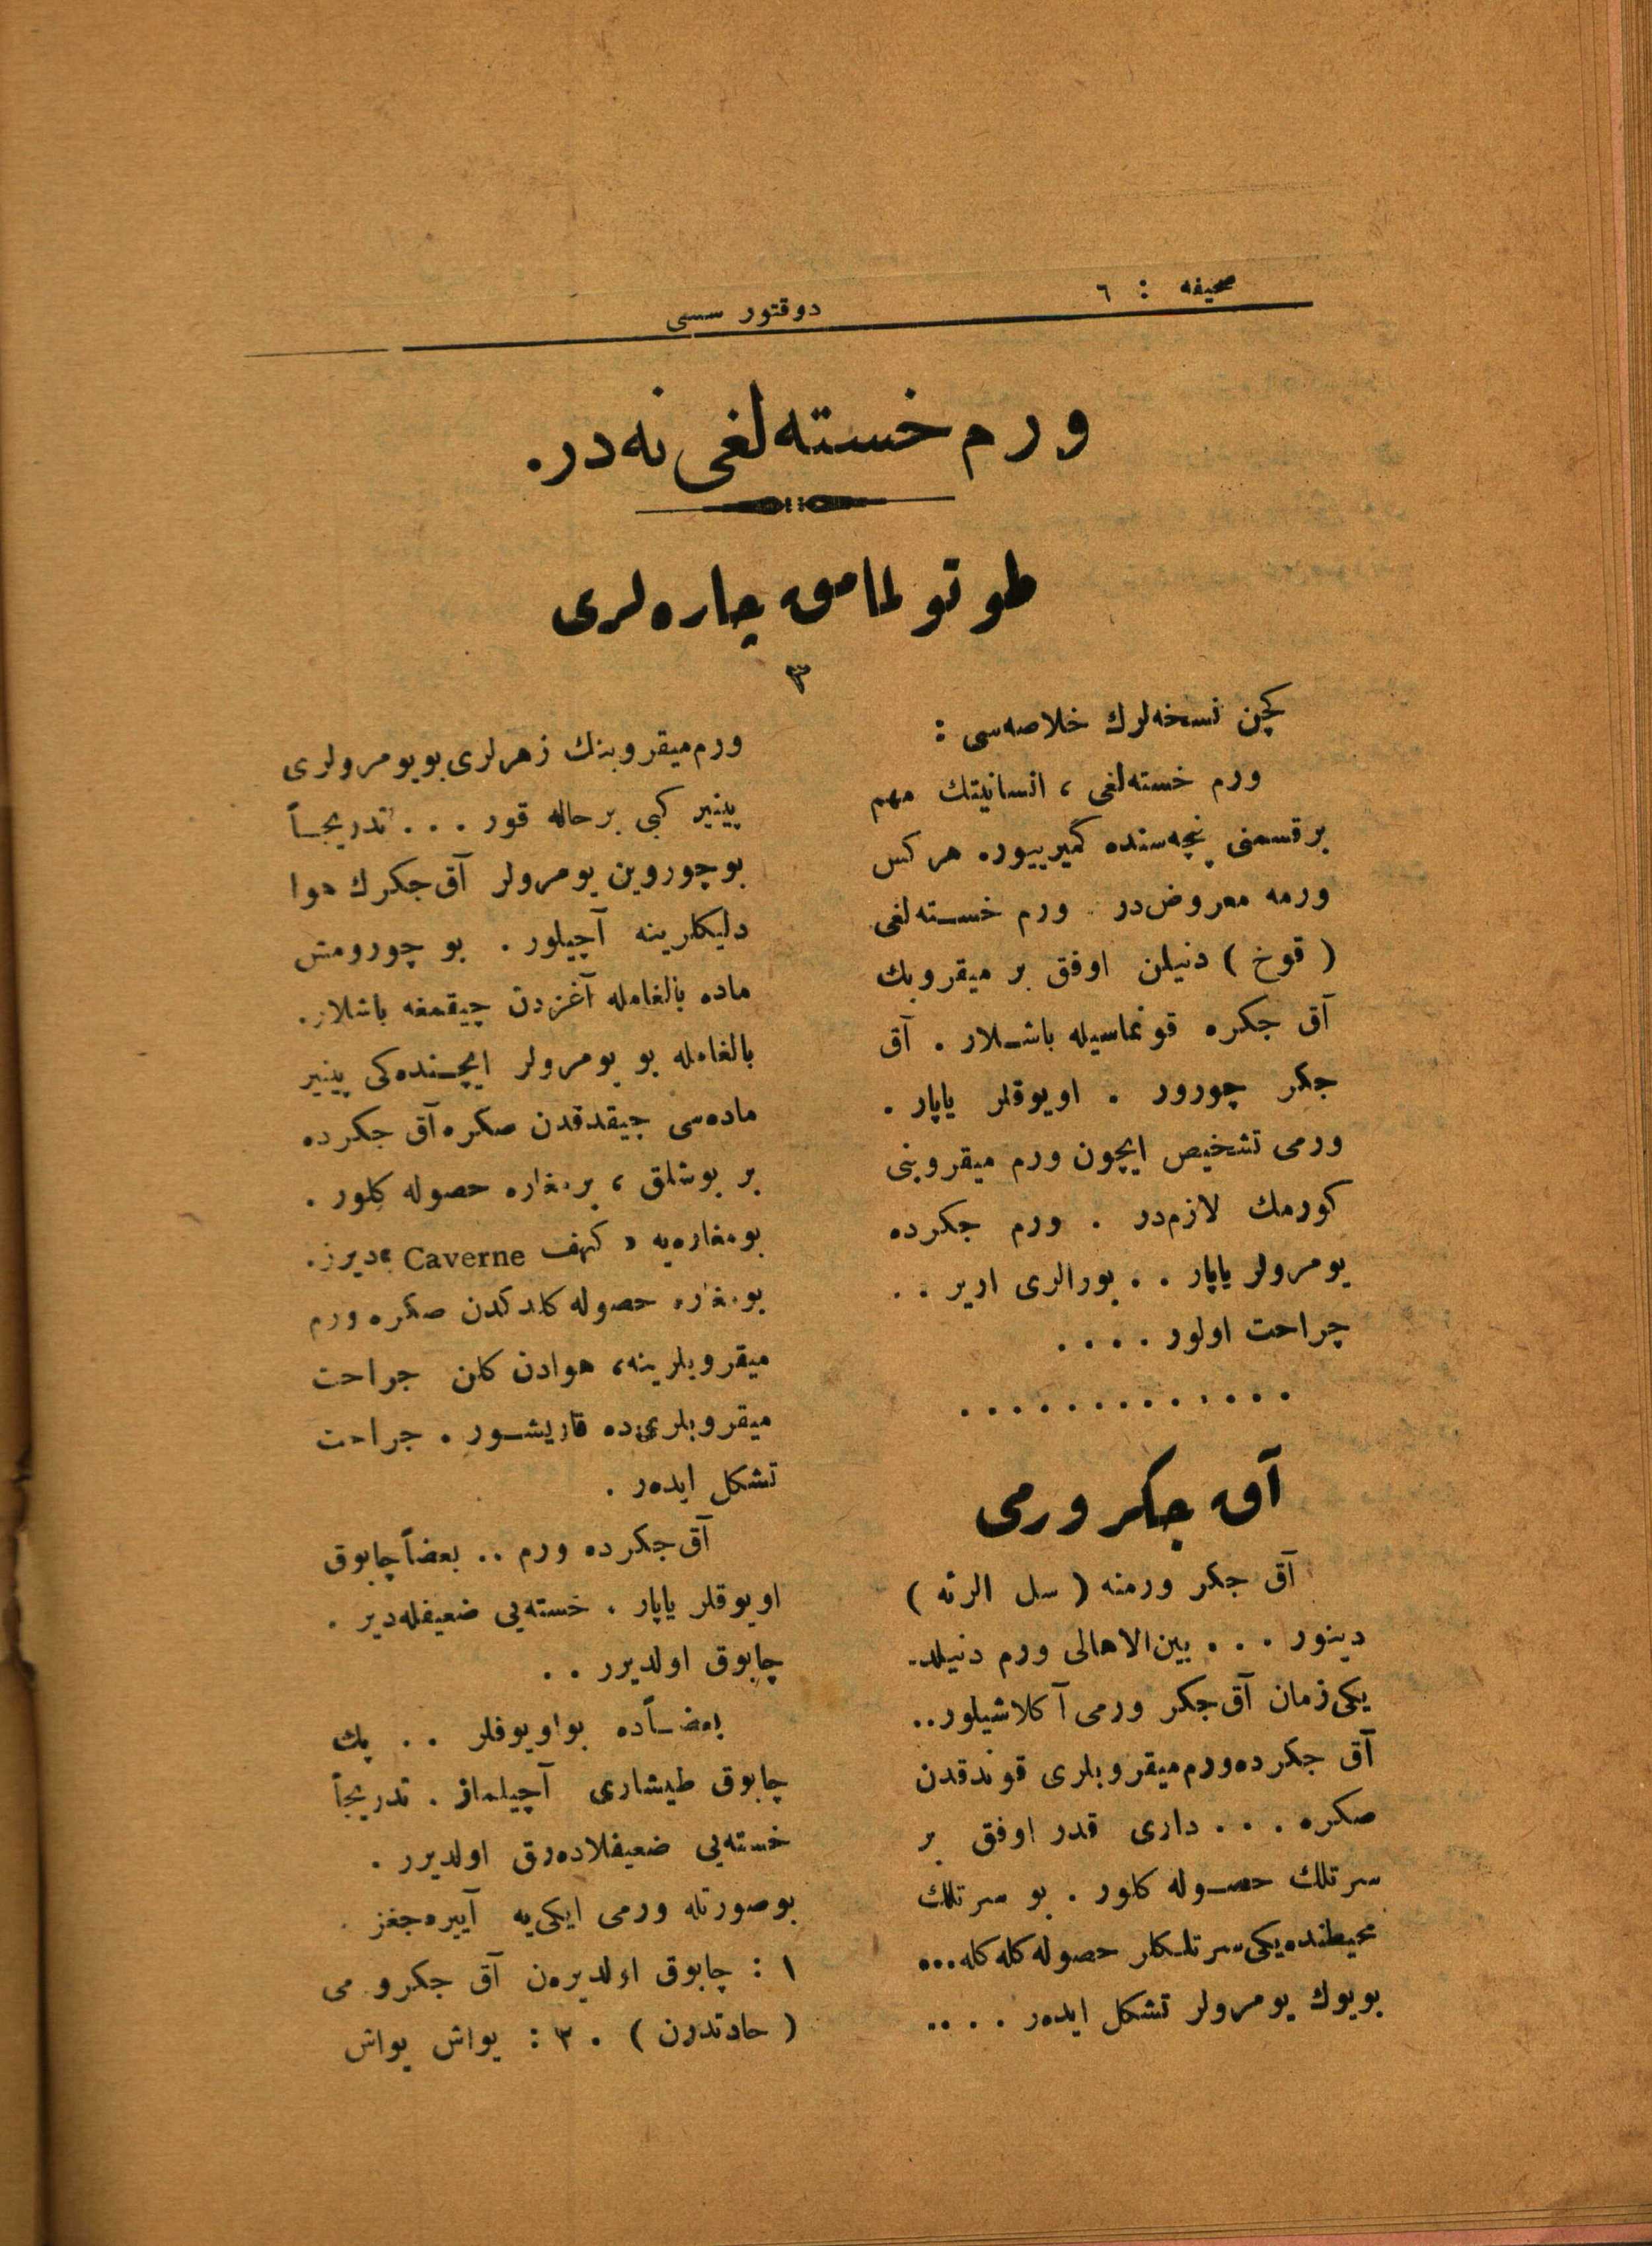 صحيفه : ٦
دوقتور سسى
ورم خسته‌لغى نه‌در.
طوتولمامق چاره‌لرى
٣
كچن نسخه‌لرك خلاصه‌سى :
ورم خسته‌لغى ، انسانيتك مهم
برقسمنى پنچه‌سنده كميرييور. هركس
ورمه معروض‌در . ورم خسته‌لغى
( قوخ ) دنيلن اوفق بر ميقروبك
آق جكره قونماسيله باشلار . آق
جكر چورور . اويوقلر ياپار .
ورمى تشخيص ايچون ورم ميقروبنى
كورمك لازم‌در . ورم جكرده
يومرولر ياپار . . بورالرى ارير . .
جراحت اولور . . . .
. . . . . . . . . . . . .
آق جكر ورمى
آق جكر ورمنه ( سل الرئه )
دينور . . . بين‌الاهالى ورم دنيلد-
يكى زمان آق‌جكر ورمى آكلاشيلور..
آق جكرده ورم ميقروبلرى قوندقدن
صكره . . . دارى قدر اوفق بر
سرتلك حصوله كلور . بو سرتلك
محيطنده يكى سرتلكلر حصوله كله كله...
بويوك يومرولر تشكل ايدەر . . ..
ورم ميقروبنك زهرلرى بويومرولرى
پينير كبى برحاله قور . . . تدريجاً
بوچوروين يومرولر آق‌جكرك هوا
دليكلرينه آچيلور . بو چورومش
ماده بالغامله آغزدن چيقمغه باشلار.
بالغامله بو يومرولر ايچنده‌كى پينير
ماده‌سى چيقدقدن صكره آق جكرده
بر بوشلق ، بر مغاره حصوله كلور .
بومغاره‌يه « كهف Caverne » ديرز.
بومغاره حصوله كلدكدن صكره ورم
ميقروبلرينه، هوادن كلن جراحت
ميقروبلرى‌ده قاريشور . جراحت
تشكل ايدەر .
آق‌جكرده ورم .. بعضاً چابوق
اويوقلر ياپار . خسته‌يى ضعيفله‌دير .
چابوق اولديرر . .
بعضاًده بواويوقلر . . پك
چابوق طيشارى آچيلماز . تدريجاً
خسته‌يى ضعيفلاده‌رق اولديرر .
بوصورتله ورمى ايكى‌يه آييره‌جغز .
١ : چابوق اولديرەن آق جكرورمى
( حاد تدرن ) . ٢ : يواش يواش